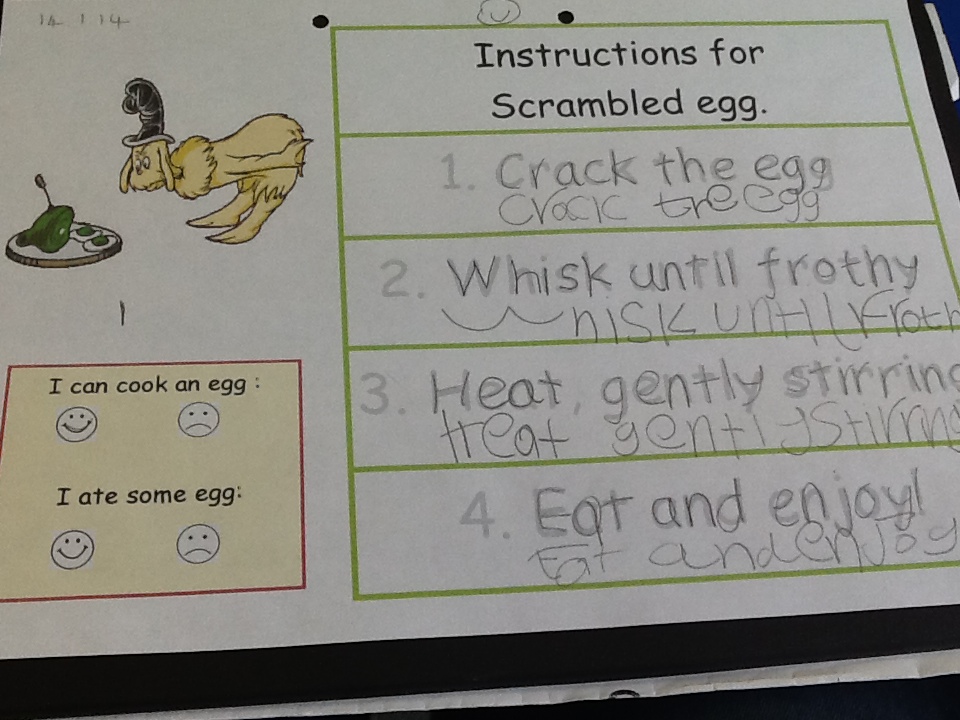 14 1 14
Instructions for
Scrambled egg.
1. Crack the egg
Crack tre egg
2. Whisk until frothy
Whisk until froth
3. Heat, gently stirring
Heat gently Stirring
4. Eat and enjoy!
Eat and enjoy
1
I can cook an egg :
I ate some egg: